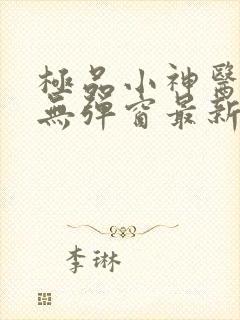 極品小神醫
無彈窗最新
李琳